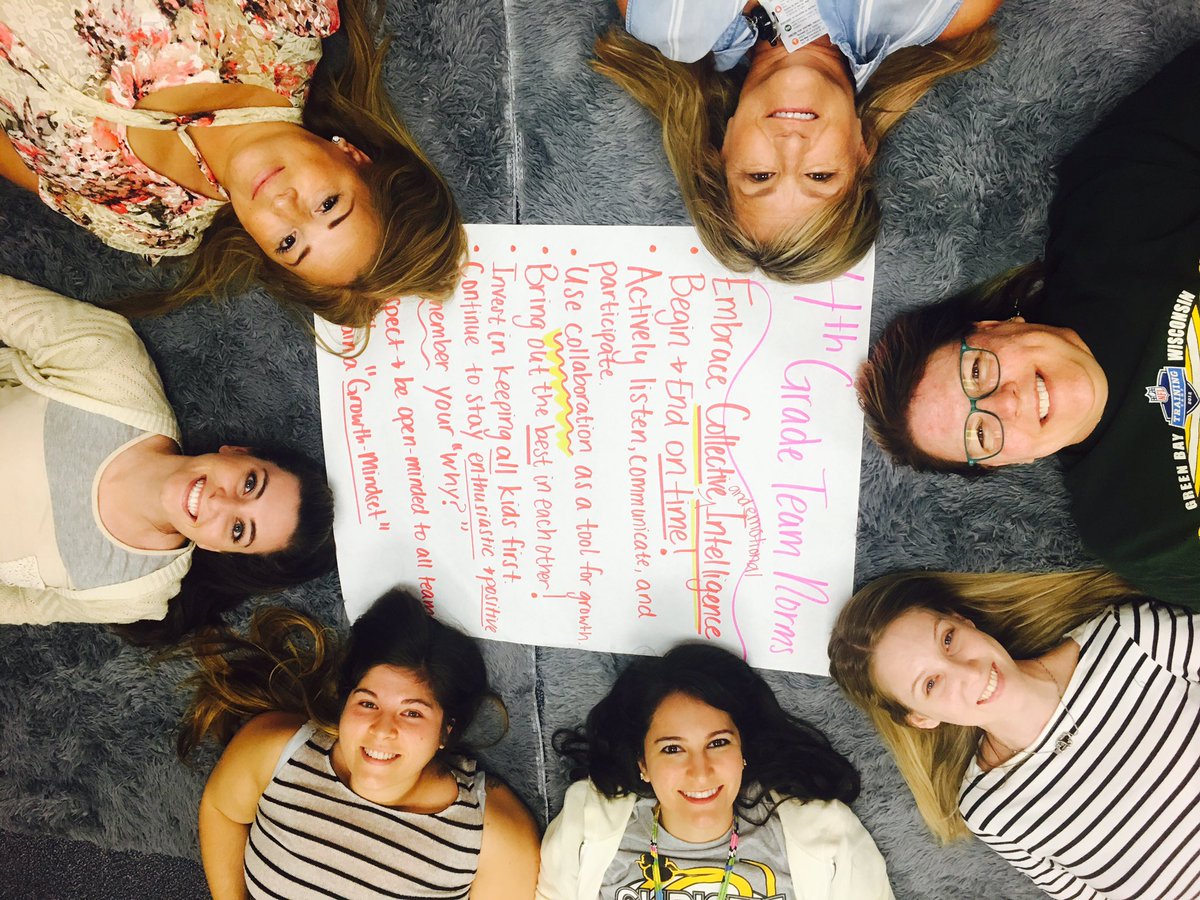 4th Grade Team Norms
• Embrace Collective, Intelligence
and emotional
• Begin + End on time!
• Actively listen, communicate, and
participate.
• Use collaboration as a tool for growth
• Bring out the best in each other!
• Invest in keeping all kids first
• Continue to stay enthusiastic + positive
your "why?"
+ be open-minded to all
"Growth-Mindset"
GREEN BAY WISCONSIN
NFL
TRAINING